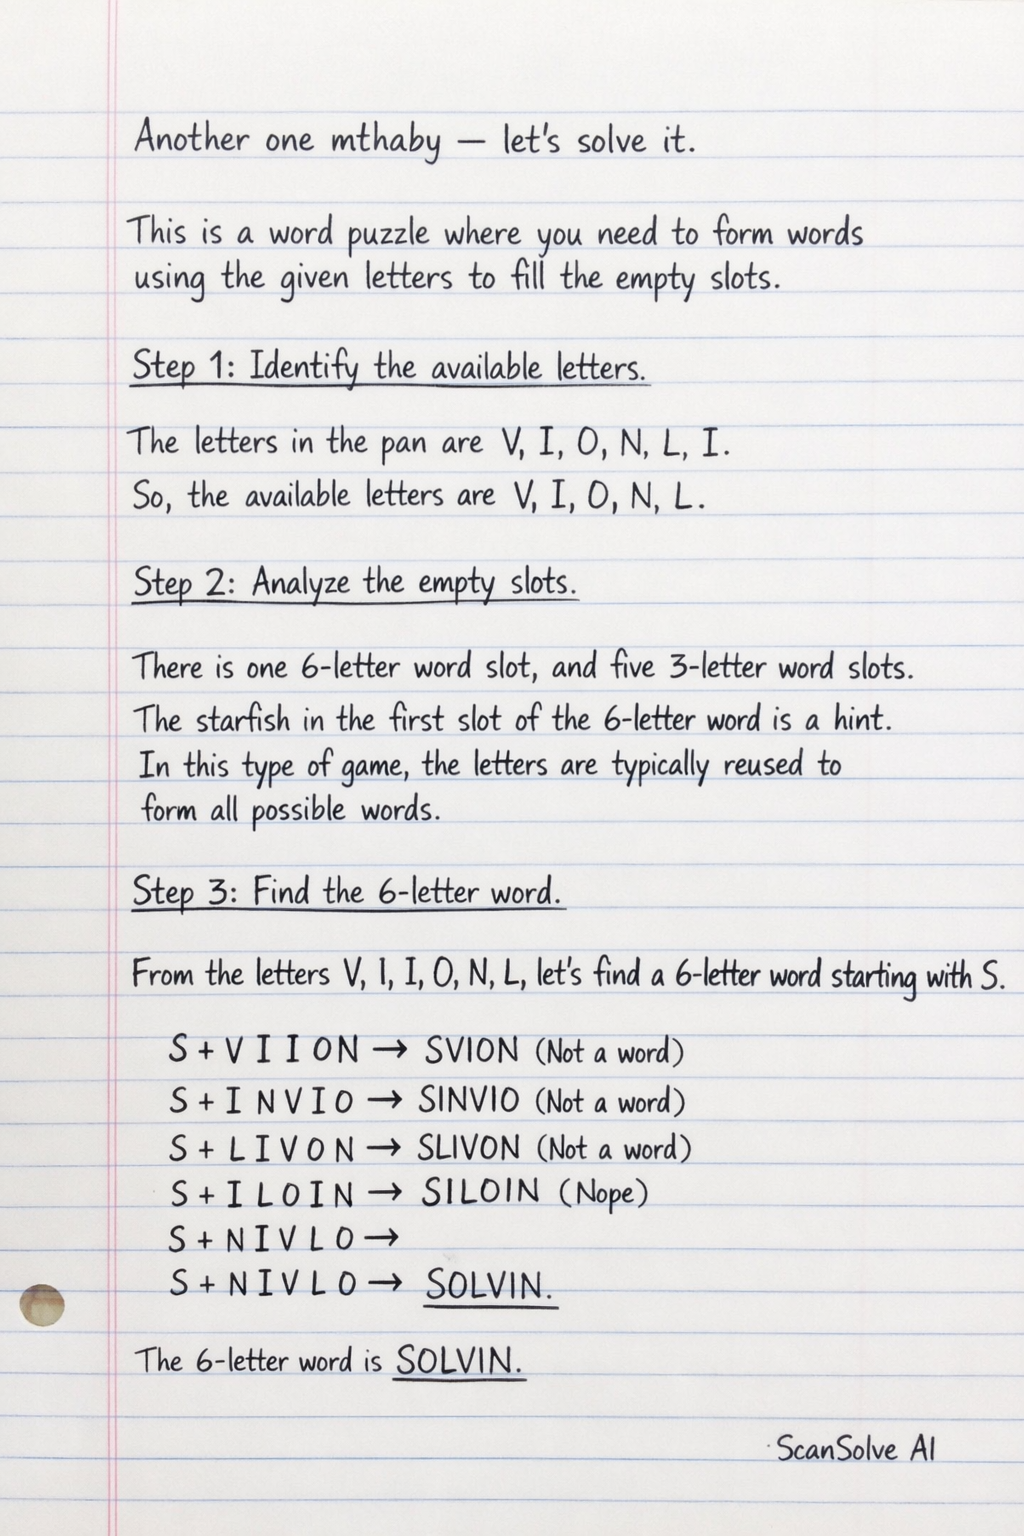 Another one mthaby — let's solve it.
This is a word puzzle where you need to form words
using the given letters to fill the empty slots.
Step 1: Identify the available letters.
The letters in the pan are V, I, O, N, L, I.
So, the available letters are V, I, O, N, L.
Step 2: Analyze the empty slots.
There is one 6-letter word slot, and five 3-letter word slots.
The starfish in the first slot of the 6-letter word is a hint.
In this type of game, the letters are typically reused to
form all possible words.
Step 3: Find the 6-letter word.
From the letters V, I, I, O, N, L, let's find a 6-letter word starting with S.
S + V I I O N → SVION (Not a word)
S + I N V I O → SINVIO (Not a word)
S + L I V O N → SLIVON (Not a word)
S + I L O I N → SILOIN (Nope)
S + N I V L O →
S + N I V L O → SOLVIN.
The 6-letter word is SOLVIN.
ScanSolve AI